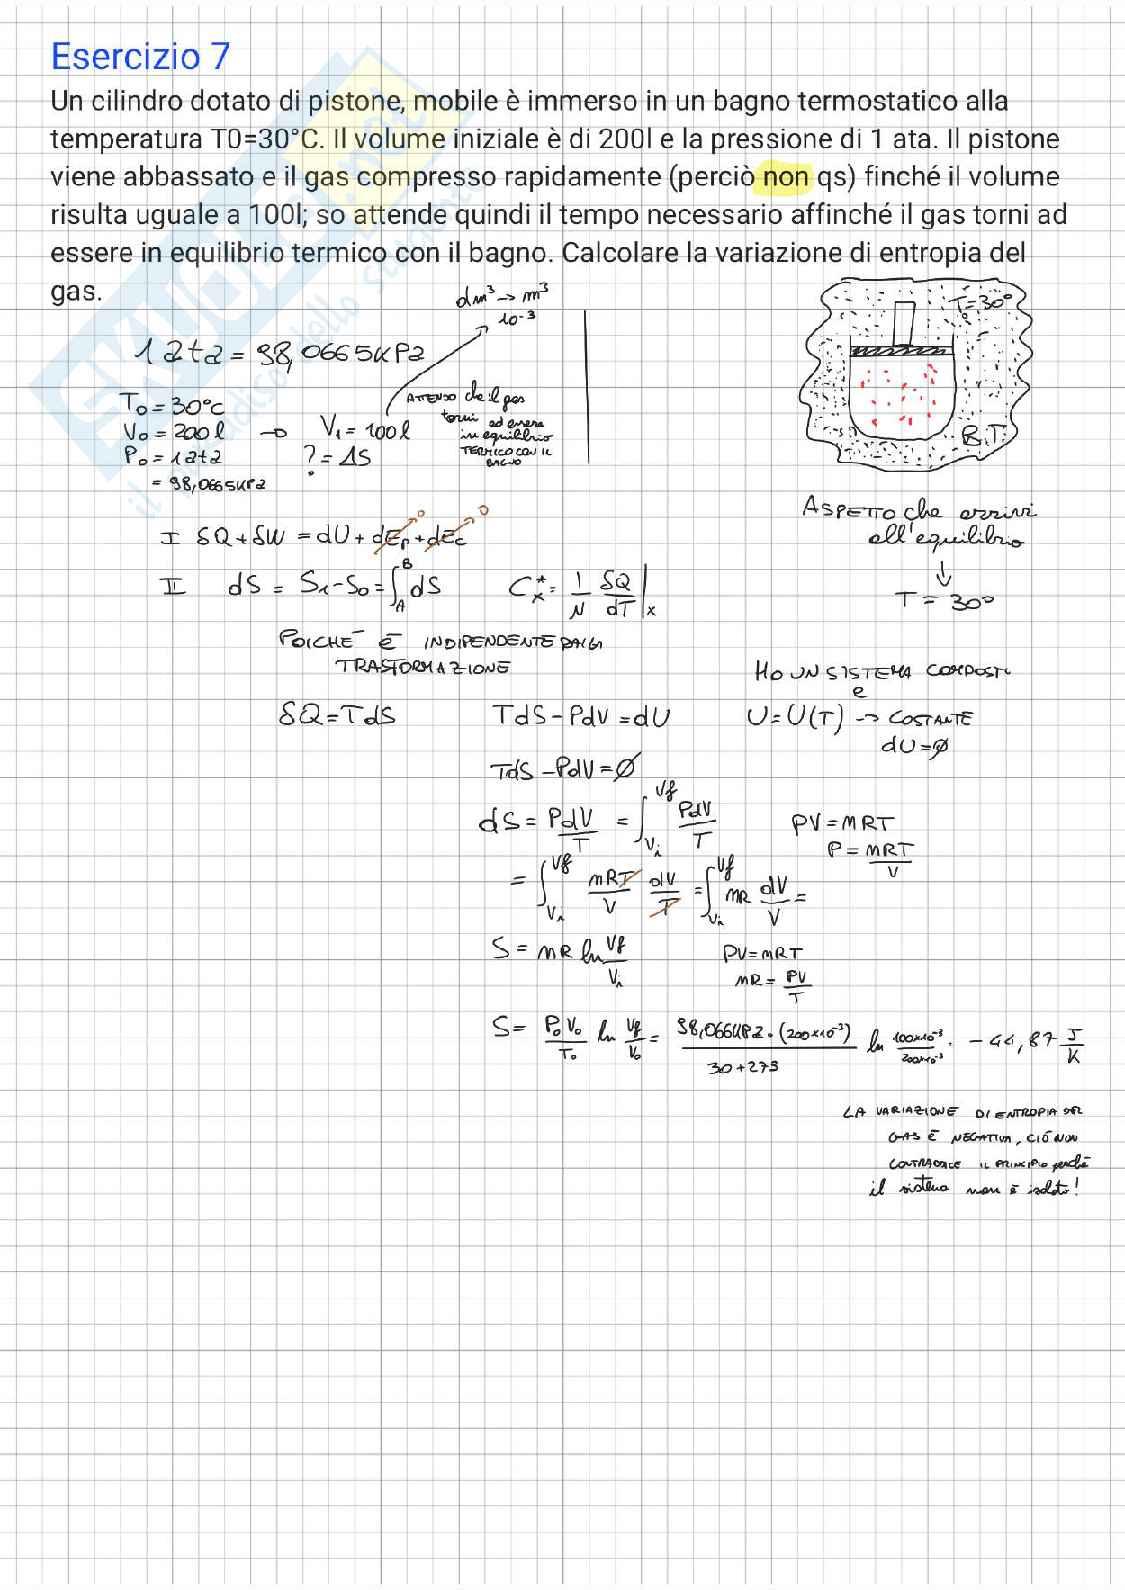 Esercizio 7
Un cilindro dotato di pistone, mobile è immerso in un bagno termostatico alla
temperatura T0=30°C. Il volume iniziale è di 200l e la pressione di 1 ata. Il pistone
viene abbassato e il gas compresso rapidamente (perciò non qs) finché il volume
risulta uguale a 100l; so attende quindi il tempo necessario affinché il gas torni ad
essere in equilibrio termico con il bagno. Calcolare la variazione di entropia del
gas.
dm³ → m³
10⁻³
T=30°
1 ata = 98,0665KPa
T₀=30°C
V₀=200l → V₁=100l
P₀=1ata ?=ΔS
= 98,0665KPa
ATTENDO che il gas
torni ad essere
in equilibrio
TERMICO CON IL
BAGNO
B.T.
ASPETTO che arrivi
all'equilibrio
↓
T=30°
I δQ+δW=dU+dEp+dEc
0 0
II dS = S₁-S₀=∫_A^B dS Cx*= 1/N δQ/dT|x
POICHÉ È INDIPENDENTE DALLA
TRASFORMAZIONE
HO UN SISTEMA COMPOSTO
e
δQ=TdS TdS-PdV=dU U=U(T) → COSTANTE
dU=∅
TdS-PdV=∅
dS=PdV/T = ∫_Vi^Vf PdV/T PV=MRT
P=MRT/V
= ∫_Vi^Vf mRT/V dV/T = ∫_Vi^Vf MR dV/V =
S=MR ln Vf/Vi PV=MRT
MR=PV/T
S= P₀V₀/T₀ ln Vf/V₀ = 98,066KPa·(200x10⁻³)/30+273 ln 100x10⁻³/200x10⁻³ · -44,87 J/K
LA VARIAZIONE DI ENTROPIA DEL
GAS È NEGATIVA, CIÓ NON
CONTRADDICE IL PRINCIPIO perché
il sistema non è isolato!